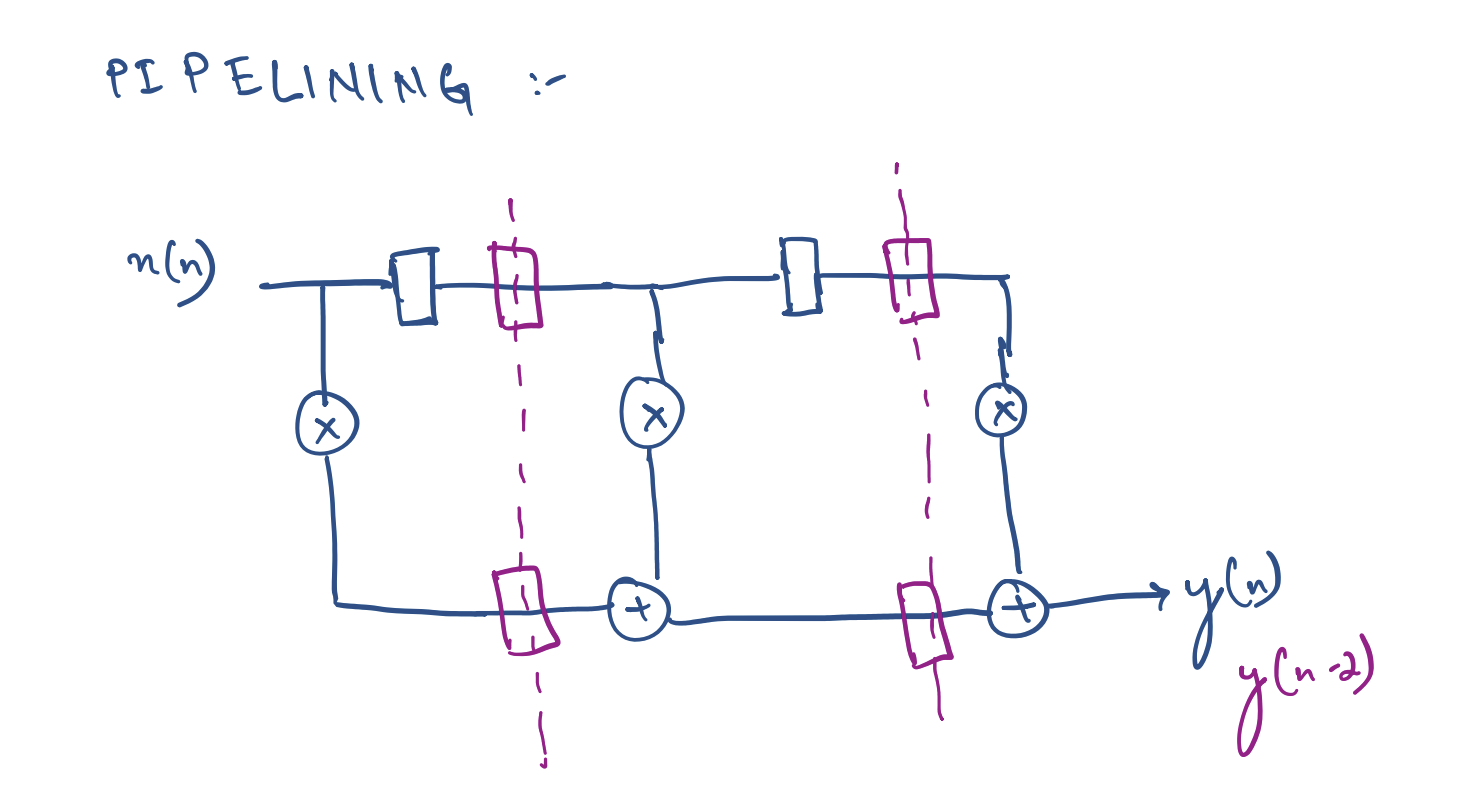 PIPELINING :-
x(n)
×
×
×
+
+
y(n)
y(n-2)